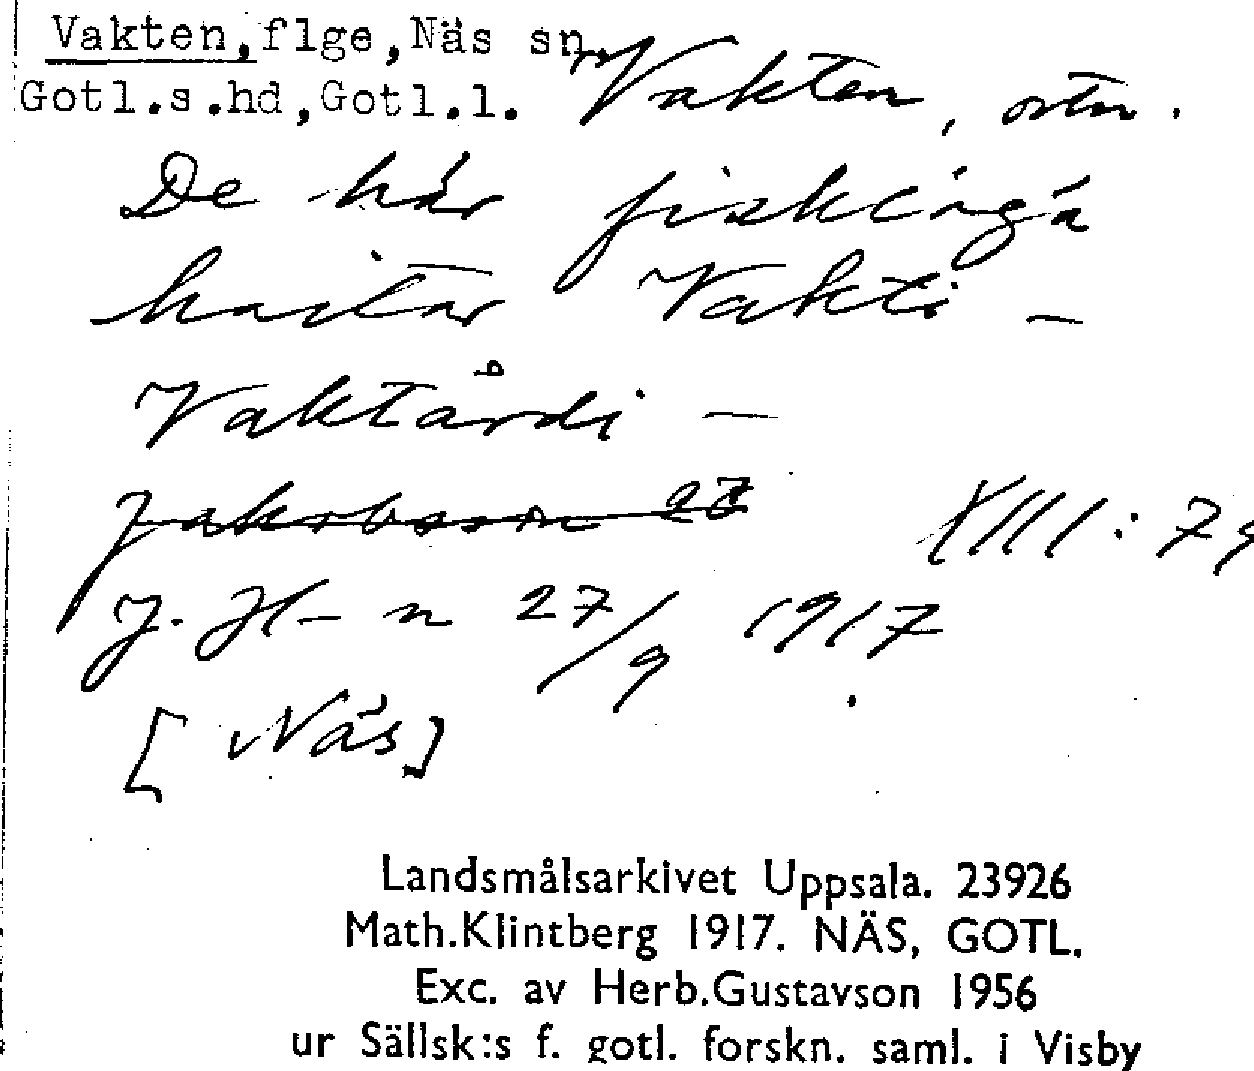 Vakten, flge, Näs sn,
Gotl.s.hd, Gotl.l.
Vakten, ortn.
De här fisklägä
haitar Vakti –
Vaktårdi –
Jakobsson 27
XIII: 79
J. Hl–n 27/9 1917
[Näs]
Landsmålsarkivet Uppsala. 23926
Math.Klintberg 1917. NÄS, GOTL.
Exc. av Herb.Gustavson 1956
ur Sällsk:s f. gotl. forskn. saml. i Visby